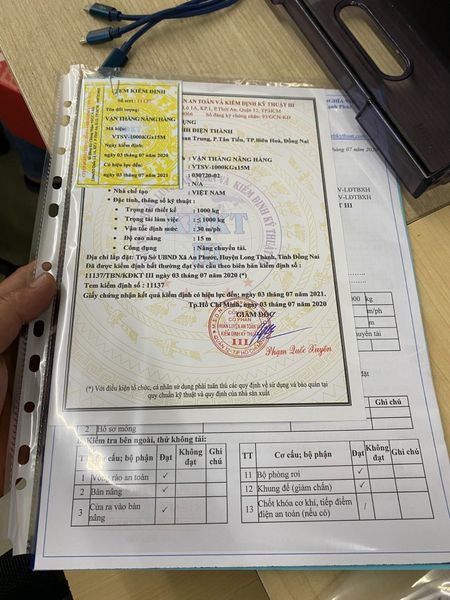 TEM KIỂM ĐỊNH
Số seri : 11137
Tên đối tượng:
VẬN THĂNG NÂNG HÀNG
Mã hiệu:
VTSV-1000KGx15M
Ngày kiểm định:
ngày 03 tháng 07 năm 2020
Có hiệu lực đến:
ngày 03 tháng 07 năm 2021
AN TOÀN VÀ KIỂM ĐỊNH KỸ THUẬT III
KP.1, P.Thới An, Quận 12, TP.HCM
Số đăng ký chứng nhận:
DỤNG
ĐIỆN THÀNH
Trung, P.Tân Tiến, TP.Biên Hoà, Đồng Nai
: VẬN THĂNG NÂNG HÀNG
: VTSV-1000KGx15M
: 030720-02
: N/A
Nhà chế tạo : VIỆT NAM
Đặc tính, thông số kỹ thuật:
Trọng tải thiết kế : 1000 kg
Trọng tải làm việc : ≤ 1000 kg
Vận tốc định mức : 30 m/ph
Độ cao nâng : 15 m
Công dụng : Nâng chuyển tải.
Địa chỉ lắp đặt: Trụ Sở UBND Xã An Phước, Huyện Long Thành, Tỉnh Đồng Nai
Đã được kiểm định bất thường đạt yêu cầu theo biên bản kiểm định số :
11137/TBN/KĐKT III ngày 03 tháng 07 năm 2020 (*)
Tem kiểm định số : 11137
Giấy chứng nhận kết quả kiểm định có hiệu lực đến: ngày 03 tháng 07 năm 2021.
Tp.Hồ Chí Minh, ngày 03 tháng 07 năm 2020
GIÁM ĐỐC
CỔ PHẦN
HUẤN LUYỆN AN TOÀN VÀ
KIỂM ĐỊNH KỸ THUẬT
III
Phạm Quốc Xuyên
(*) Với điều kiện tổ chức, cá nhân sử dụng phải tuân thủ các quy định về sử dụng và bảo quản tại
quy chuẩn kỹ thuật và quy định của nhà sản xuất
Ghi chú
2 Hố sơ móng
1. Kiểm tra bên ngoài, thử không tải:
TT Cơ cấu; bộ phận Đạt Không đạt Ghi chú
1 Vòng rào an toàn ✓
2 Bàn nâng ✓
3 Cửa ra vào bàn nâng ✓
TT Cơ cấu; bộ phận Đạt Không đạt Ghi chú
11 Bộ phòng rơi ✓
12 Khung đế (giảm chấn) ✓
13 Chốt khóa cơ khí, tiếp điểm điện an toàn (nếu có) /